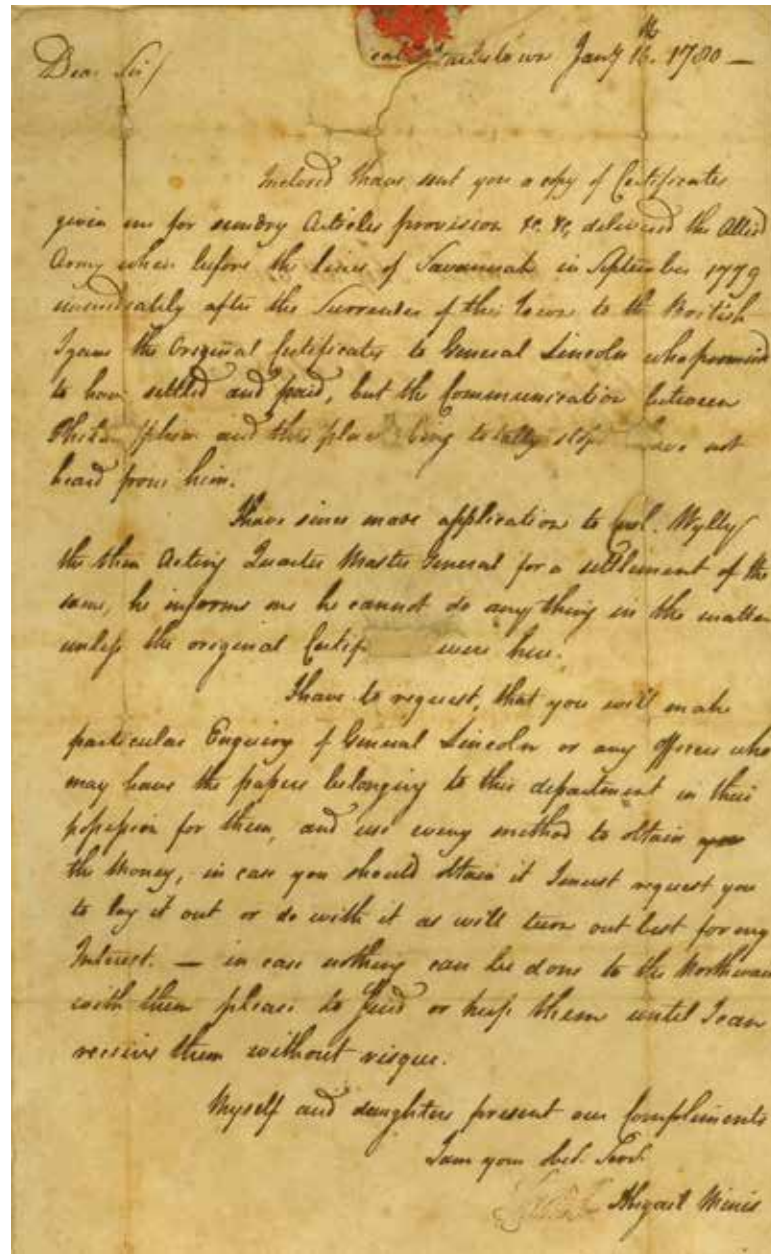 Dear Sir/
Jany 16th 1780 —
Inclosed I have sent you a copy of Certificates
given me for sundry Articles provission &c. &c, delivered the Allied
Army when before the lines of Savannah in September 1779
immediately after the Surrender of this Town to the British
I gave the Original Certificates to General Lincoln who promised
to have settled and paid, but the Communication between
and this place being totally have not
heard from him.
I have since made application to Coll. Wylly
the then Acting Quarter Master General for a settlement of the
same, he informs me he cannot do any thing in the matter
unless the original Certif were here.
I have to request, that you will make
particular Enquiry of General Lincoln or any officer who
may have the papers belonging to this department in their
possession for them, and use every method to obtain
the Money, in case you should obtain it I must request you
to lay it out or do with it as will turn out best for my
Interest. — in case nothing can be done to the Northward
with them please to or keep them until I can
receive them without risque.
Myself and daughters present our Compliments
I am your obed. Servt.
Abigail Minis